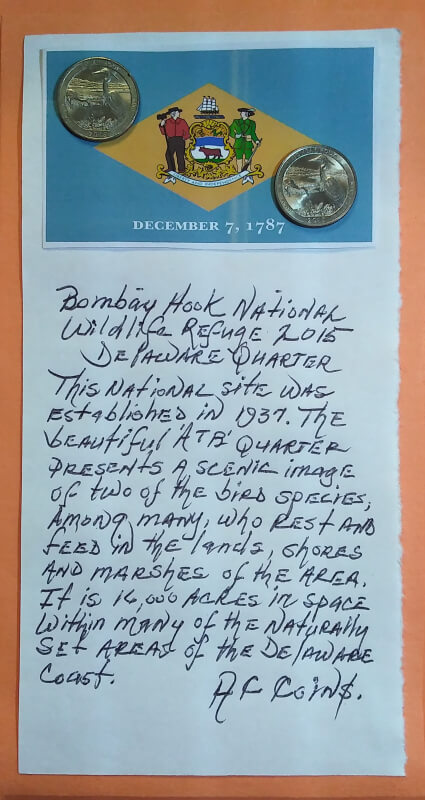 DECEMBER 7, 1787
Bombay Hook National
Wildlife Refuge 2015
Delaware Quarter
This National site was
established in 1937. The
beautiful 'ATB' Quarter
presents a scenic image
of two of the bird species,
among many, who rest and
feed in the lands, shores
and marshes of the area.
It is 16,000 acres in space
within many of the naturally
set areas of the Delaware
Coast.
AC Coin$.